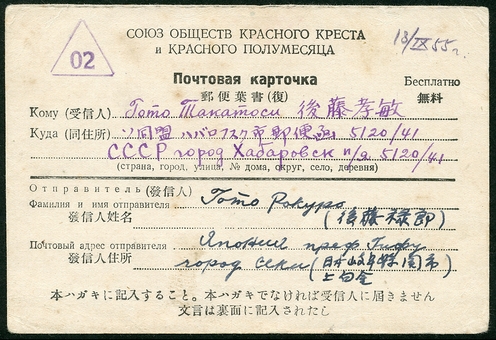 СОЮЗ ОБЩЕСТВ КРАСНОГО КРЕСТА
и КРАСНОГО ПОЛУМЕСЯЦА
13/IX 55 г.
02
Почтовая карточка
Бесплатно
郵便葉書(復)
無料
Кому (受信人) Гото Такатоси 後藤孝敏
Куда (同住所) ソ同盟ハバロフスク市郵便函 5120/41
СССР город Хабаровск п/я 5120/41
(страна, город, улица, № дома, округ, село, деревня)
Отправитель (發信人)
Фамилия и имя отправителя Гото Рокуро
發信人姓名 (後藤禄郎)
Почтовый адрес отправителя Япония преф. Гифу
發信人住所 город Секи (日本岐阜県関市
上白金)
本ハガキに記入すること。本ハガキでなければ受信人に届きません
文言は裏面に記入されたし